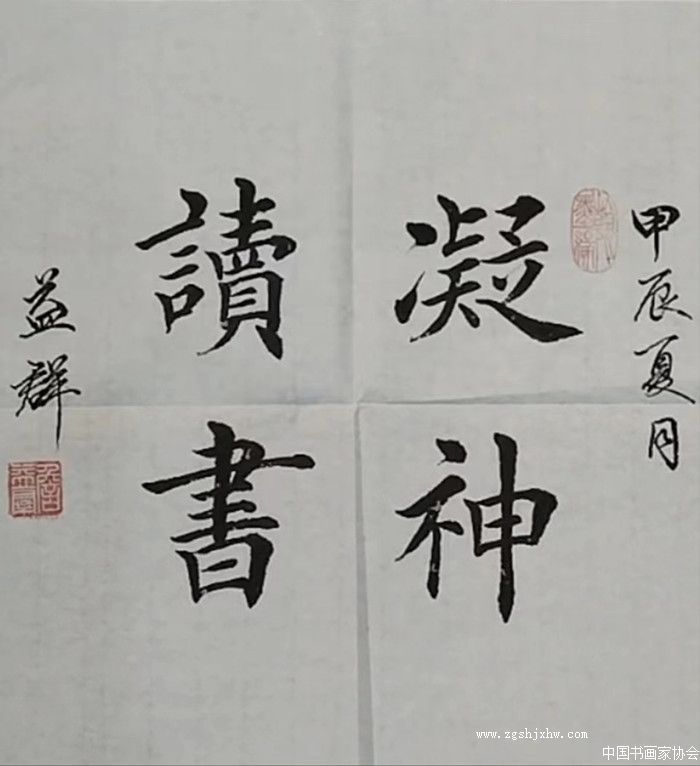 甲辰夏月
凝神
讀書
益群
www.zgshjxhw.com
中国书画家协会